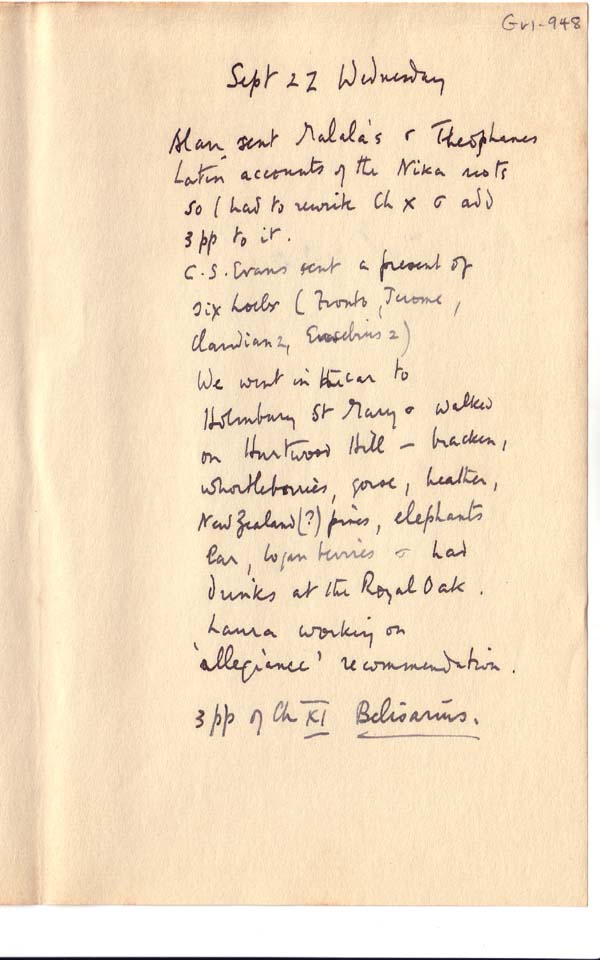 Gv1-948
Sept 22 Wednesday
Alan sent Malala's & Theophanes
Latin accounts of the Nika riots
so I had to rewrite Ch X & add
3 pp to it.
C.S. Evans sent a present of
six Loebs (Fronto, Jerome,
Claudian 2, Eusebius 2)
We went in the car to
Holmbury St Mary & walked
on Hurtwood Hill – bracken,
whortleberries, gorse, heather,
New Zealand (?) pines, elephants
Ear, loganberries & had
drinks at the Royal Oak.
Laura working on
'allegiance' recommendation.
3 pp of Ch XI Belisarius.